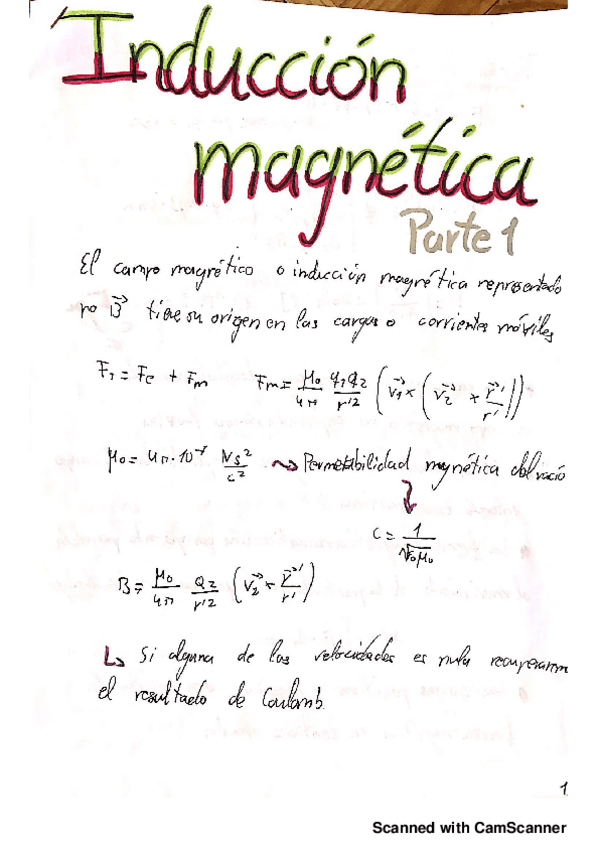 Inducción
magnética
Parte 1
El campo magnético o inducción magnética representado
po B⃗ tiene su origen en las cargas o corrientes móviles
F₁ = Fe + Fm    Fm = μ₀/4π q₁q₂/r'² (v⃗₁ × (v⃗₂ × r⃗'/r'))
μ₀ = 4π·10⁻⁷ Ns²/c² ⇝ Permeabilidad magnética del vacío
c = 1/√ε₀μ₀
B = μ₀/4π q₂/r'² (v⃗₂ × r⃗'/r')
↳ Si alguna de las velocidades es nula recuperamos
el resultado de Coulomb.
1
Scanned with CamScanner